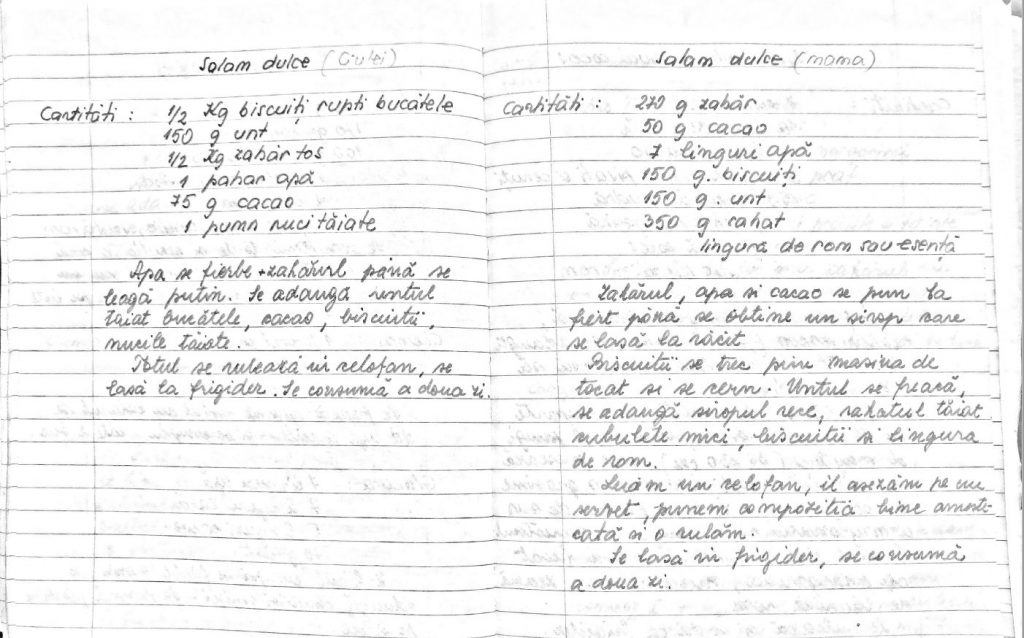 Salam dulce (Giulei)
Cantităti : 1/2 Kg biscuiți rupti bucătele
150 g unt
1/2 Kg zahăr tos
1 pahar apă
75 g cacao
1 pumn nuci tăiate
Apa se fierbe + zahărul până se
leagă putin. Se adaugă untul
tăiat bucătele, cacao, biscuitii,
nucile tăiate.
Totul se rulează în celofan, se
lasă la frigider. Se consumă a doua zi.
Salam dulce (mama)
Cantităti : 270 g zahăr
50 g cacao
7 linguri apă
150 g. biscuiți
150 g. unt
350 g rahat
lingura de rom sau esență
Zahărul, apa si cacao se pun la
fiert până se obtine un sirop care
se lasă la răcit.
Biscuitii se trec prin masina de
tocat si se cern. Untul se freacă,
se adaugă siropul rece, rahatul tăiat
cubulete mici, biscuitii si lingura
de rom.
Luăm un celofan, îl asezăm pe un
servet, punem compozitia bine ameste-
cată si o rulăm.
Se lasă în frigider, se consumă
a doua zi.